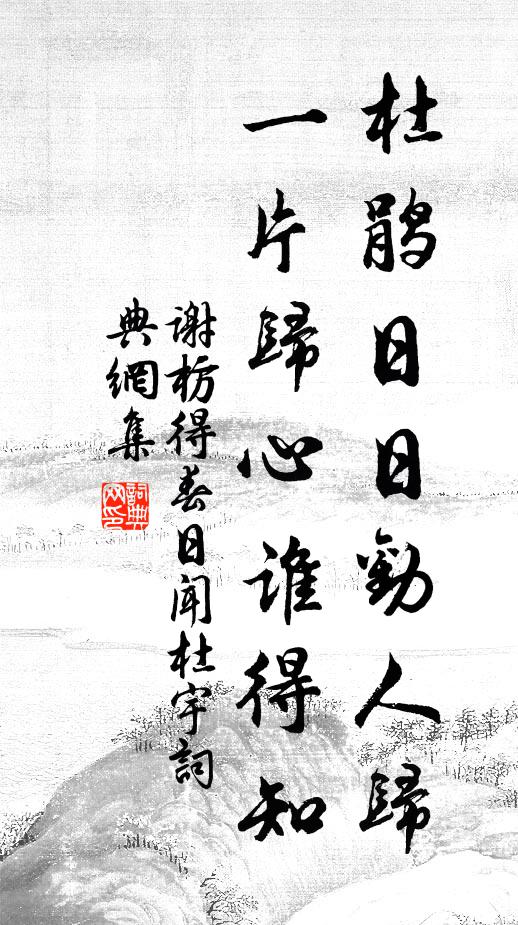 杜鹃日日劝人歸
一片歸心谁得知
谢枋得春日闻杜宇詞
典網集
詞典网印